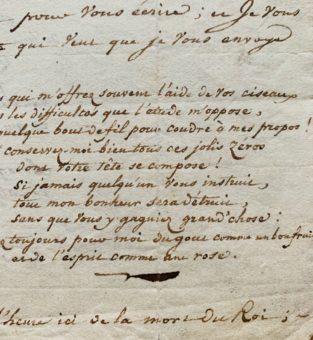 pour vous écrire ; ce Je vous
qui veut que je vous envoye
qui m'offrez souvent l'aide de vos ciseaux
les difficultés que l'étude m'oppose,
quelque bout de fil pour coudre à mes propos !
conservez-moi bien tous ces jolis zéros
dont votre tête se compose !
Si jamais quelqu'un vous instruit,
tout mon bonheur sera détruit,
sans que vous y gagniez grand'chose :
toujours pour moi du gout comme un bon fruit
et de l'esprit comme une rose.
l'heure ici de la mort du Roi ;